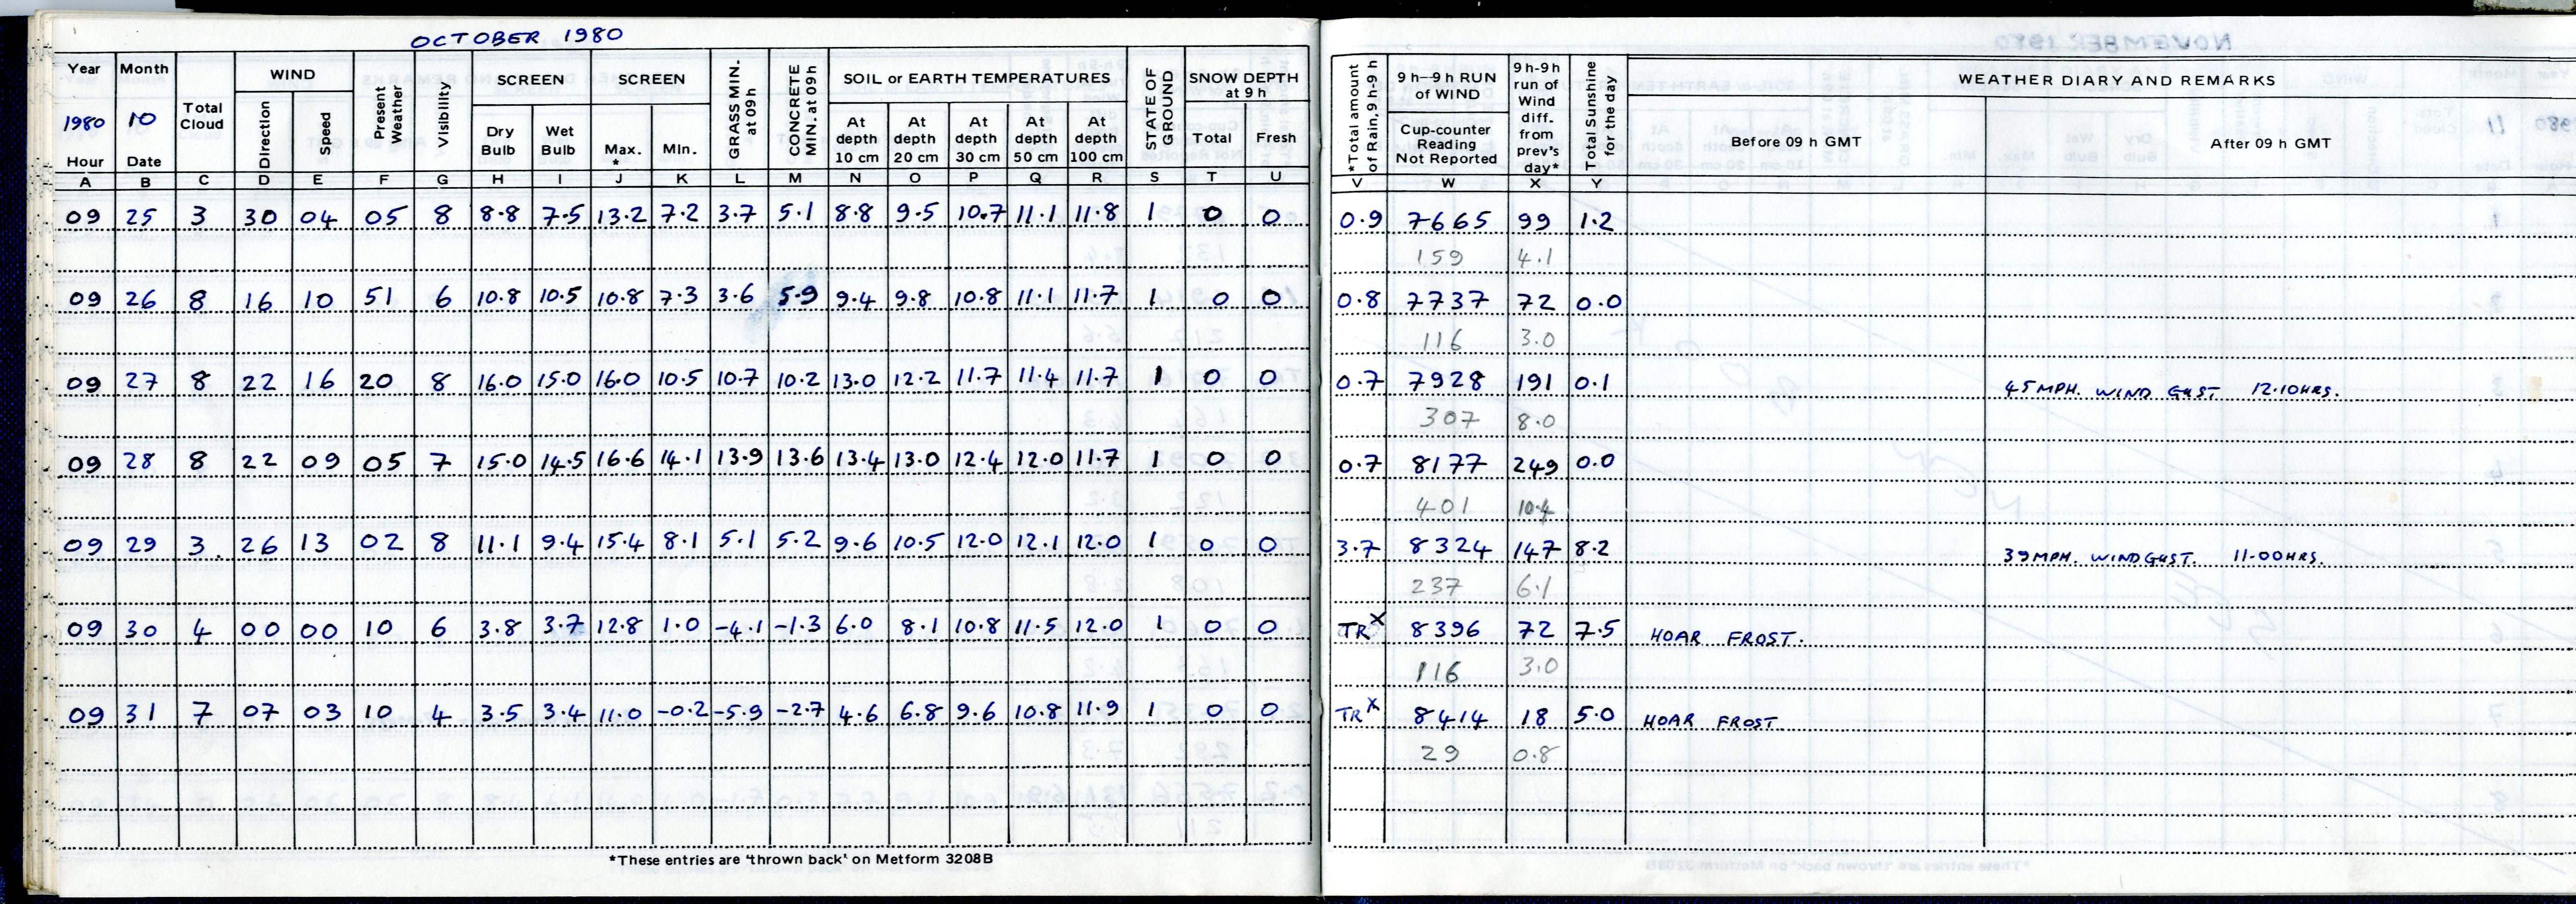 OCTOBER 1980
Year Month Total Cloud WIND Present Weather Visibility SCREEN SCREEN GRASS MIN. at 09h CONCRETE MIN. at 09h SOIL or EARTH TEMPERATURES STATE OF GROUND SNOW DEPTH at 9 h
1980 10 Direction Speed Dry Bulb Wet Bulb Max. * Min. At depth 10 cm At depth 20 cm At depth 30 cm At depth 50 cm At depth 100 cm Total Fresh
Hour Date
A B C D E F G H I J K L M N O P Q R S T U
09 25 3 30 04 05 8 8.8 7.5 13.2 7.2 3.7 5.1 8.8 9.5 10.7 11.1 11.8 1 0 0
09 26 8 16 10 51 6 10.8 10.5 10.8 7.3 3.6 5.9 9.4 9.8 10.8 11.1 11.7 1 0 0
09 27 8 22 16 20 8 16.0 15.0 16.0 10.5 10.7 10.2 13.0 12.2 11.7 11.4 11.7 1 0 0
09 28 8 22 09 05 7 15.0 14.5 16.6 14.1 13.9 13.6 13.4 13.0 12.4 12.0 11.7 1 0 0
09 29 3. 26 13 02 8 11.1 9.4 15.4 8.1 5.1 5.2 9.6 10.5 12.0 12.1 12.0 1 0 0
09 30 4 00 00 10 6 3.8 3.7 12.8 1.0 -4.1 -1.3 6.0 8.1 10.8 11.5 12.0 1 0 0
09 31 7 07 03 10 4 3.5 3.4 11.0 -0.2 -5.9 -2.7 4.6 6.8 9.6 10.8 11.9 1 0 0
*These entries are 'thrown back' on Metform 3208B
*Total amount of Rain, 9 h-9 h 9h-9h RUN of WIND 9h-9h run of Wind diff. from prev's day* Total Sunshine for the day WEATHER DIARY AND REMARKS
Cup-counter Reading Not Reported Before 09 h GMT After 09 h GMT
V W X Y
0.9 7665 99 1.2
159 4.1
0.8 7737 72 0.0
116 3.0
0.7 7928 191 0.1 45 MPH. WIND GUST 12.10HRS.
307 8.0
0.7 8177 249 0.0
401 10.4
3.7 8324 147 8.2 39 MPH. WIND GUST. 11-00HRS.
237 6.1
TR x 8396 72 7.5 HOAR FROST.
116 3.0
TR x 8414 18 5.0 HOAR FROST
29 0.8